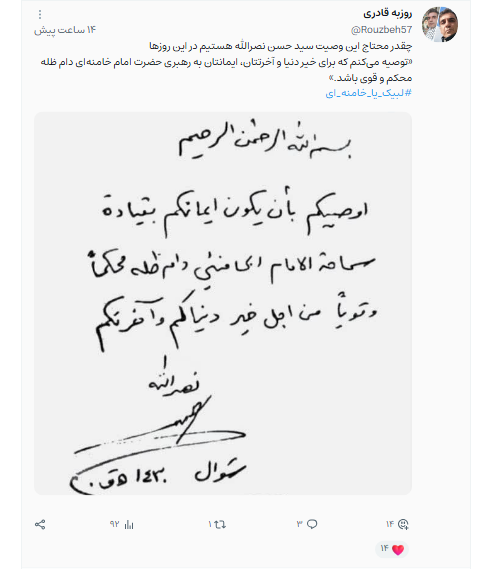 روزبه قادری
@Rouzbeh57
۱۴ ساعت پیش
چقدر محتاج این وصیت سید حسن نصرالله هستیم در این روزها
«توصیه می‌کنم که برای خیر دنیا و آخرتتان، ایمانتان به رهبری حضرت امام خامنه‌ای دام ظله
محکم و قوی باشد.»
#لبیک_یا_خامنه_ای
بسم الله الرحمن الرحیم
اوصيكم بأن يكون ايمانكم بقيادة
سماحة الامام الخامنئي دام ظله محكماً
وقوياً من اجل خير دنياكم وآخرتكم
نصرالله
شوال ١٤٣٠ هـ ق.
۱۴
۳
۱
۹۲
۱۴